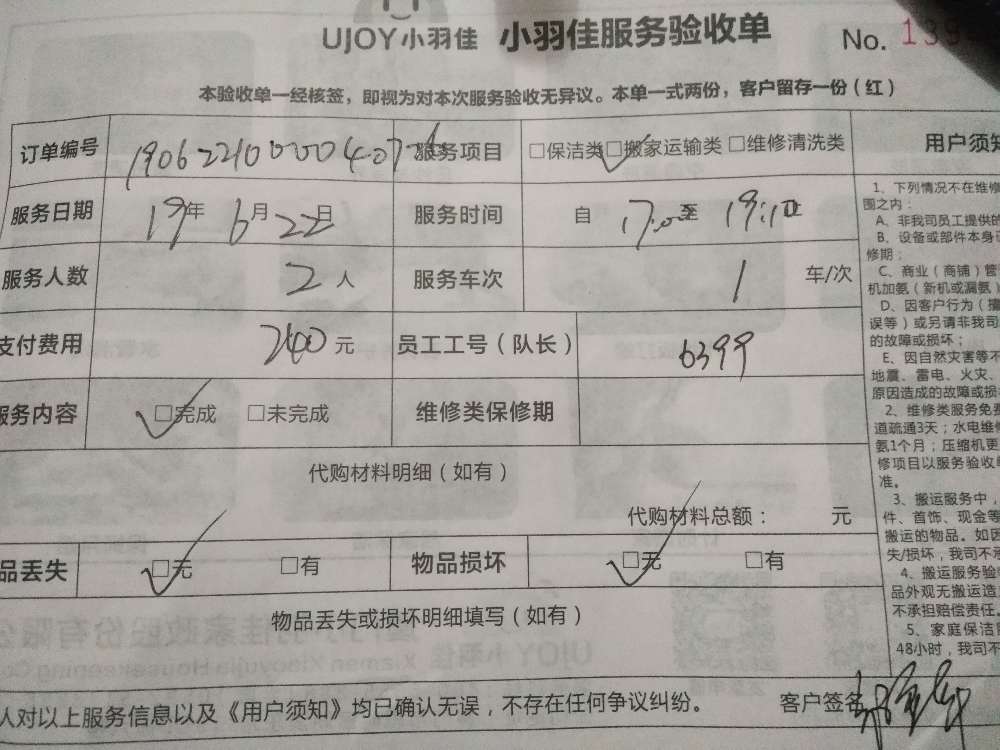 UJOY小羽佳 小羽佳服务验收单 No. 139
本验收单一经核签，即视为对本次服务验收无异议。本单一式两份，客户留存一份（红）
订单编号 服务项目 □保洁类 □搬家运输类 □维修清洗类
服务日期 19年 6月 22日 服务时间 自 17:00至 19:10止
服务人数 2人 服务车次 1 车/次
支付费用 元 员工工号（队长） 6399
服务内容 □完成 □未完成 维修类保修期
代购材料明细（如有）
代购材料总额： 元
品丢失 □无 □有 物品损坏 □无 □有
物品丢失或损坏明细填写（如有）
人对以上服务信息以及《用户须知》均已确认无误，不存在任何争议纠纷。 客户签名
用户须知
1、下列情况不在维修
围之内：
A、非我司员工提供的
B、设备或部件本身
修期；
C、商业（商铺）管
机加氨（新机或漏氨）
D、因客户行为（
误等）或另请非我司
的故障或损坏；
E、因自然灾害等不
地震、雷电、火灾、
原因造成的故障或损
2、维修类服务免费
道疏通3天；水电维修
氨1个月；压缩机更
修项目以服务验收单
准。
3、搬运服务中，
件、首饰、现金等
搬运的物品。如因
失/损坏，我司不承
4、搬运服务验
品外观无搬运造
不承担赔偿责任
5、家庭保洁
48小时，我司不